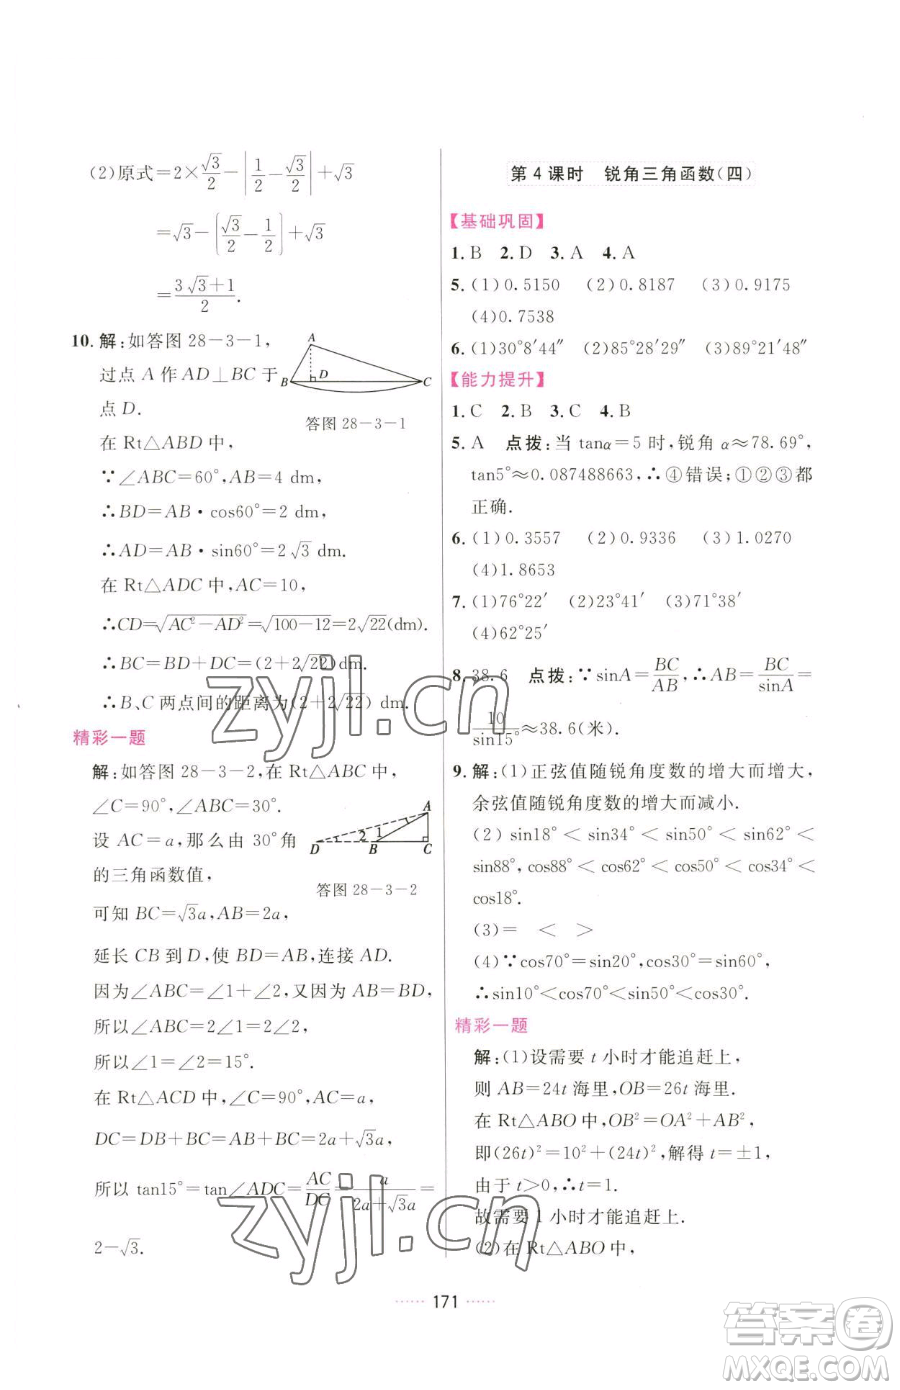 (2)原式=2×√3/2−|1/2−√3/2|+√3
=√3−(√3/2−1/2)+√3
=(3√3+1)/2.
10.解:如答图28-3-1,
过点A作AD⊥BC于
点D.
A
B
D
C
答图28-3-1
在Rt△ABD中,
∵∠ABC=60°,AB=4 dm,
∴BD=AB·cos60°=2 dm,
∴AD=AB·sin60°=2√3 dm.
在Rt△ADC中,AC=10,
∴CD=√(AC²−AD²)=√(100−12)=2√22(dm).
∴BC=BD+DC=(2+2√22) dm.
∴B、C两点间的距离为(2+2√22) dm.
精彩一题
解:如答图28-3-2,在Rt△ABC中,
∠C=90°,∠ABC=30°.
设AC=a,那么由30°角
的三角函数值,
A
D
2
1
B
C
答图28-3-2
可知BC=√3a,AB=2a,
延长CB到D,使BD=AB,连接AD.
因为∠ABC=∠1+∠2,又因为AB=BD,
所以∠ABC=2∠1=2∠2,
所以∠1=∠2=15°.
在Rt△ACD中,∠C=90°,AC=a,
DC=DB+BC=AB+BC=2a+√3a,
所以tan15°=tan∠ADC=AC/DC=a/(2a+√3a)=
2−√3.
第4课时 锐角三角函数(四)
【基础巩固】
1.B 2.D 3.A 4.A
5.(1)0.5150 (2)0.8187 (3)0.9175
(4)0.7538
6.(1)30°8′44″ (2)85°28′28″ (3)21°21′48″
【能力提升】
1.C 2.B 3.C 4.B
5.A 点拨:当tanα=5时,锐角α≈78.69°,
tan5°≈0.087488663,∴④错误;①②③都
正确.
6.(1)0.3557 (2)0.9336 (3)1.0270
(4)1.8653
7.(1)76°22′ (2)23°41′ (3)38°16′
(4)62°25′
8.38.6 点拨:∵sinA=BC/AB,∴AB=BC/sinA=
10/sin15°≈38.6(米).
9.解:(1)正弦值随锐角度数的增大而增大,
余弦值随锐角度数的增大而减小.
(2)sin18°<sin34°<sin50°<sin62°<
sin88°,cos88°<cos62°<cos50°<cos34°<
cos18°.
(3)= < >
(4)∵cos70°=sin20°,cos30°=sin60°,
∴sin10°<cos70°<sin50°<cos30°.
精彩一题
解:(1)设需要t小时才能追赶上,
则AB=24t海里,OB=26t海里.
在Rt△ABO中,OB²=OA²+AB²,
即(26t)²=10²+(24t)²,解得t=±1,
由于t>0,∴t=1.
故需要1小时才能追赶上.
(2)在Rt△ABO中,
171
zyjl.cn
zyjl.cn
答案圈
MXQE.COM